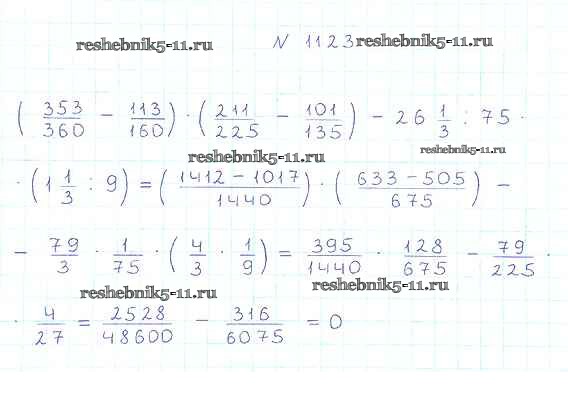 reshebnik5-11.ru N 1123 reshebnik5-11.ru
( 353/360 − 113/160 ) · ( 211/225 − 101/135 ) − 26 1/3 : 75 ·
reshebnik5-11.ru
reshebnik5-11.ru
· ( 1 1/3 : 9 ) = ( 1412 − 1017 / 1440 ) · ( 633 − 505 / 675 ) −
− 79/3 · 1/75 · ( 4/3 · 1/9 ) = 395/1440 · 128/675 − 79/225 ·
reshebnik5-11.ru reshebnik5-11.ru
· 4/27 = 2528/48600 − 316/6075 = 0